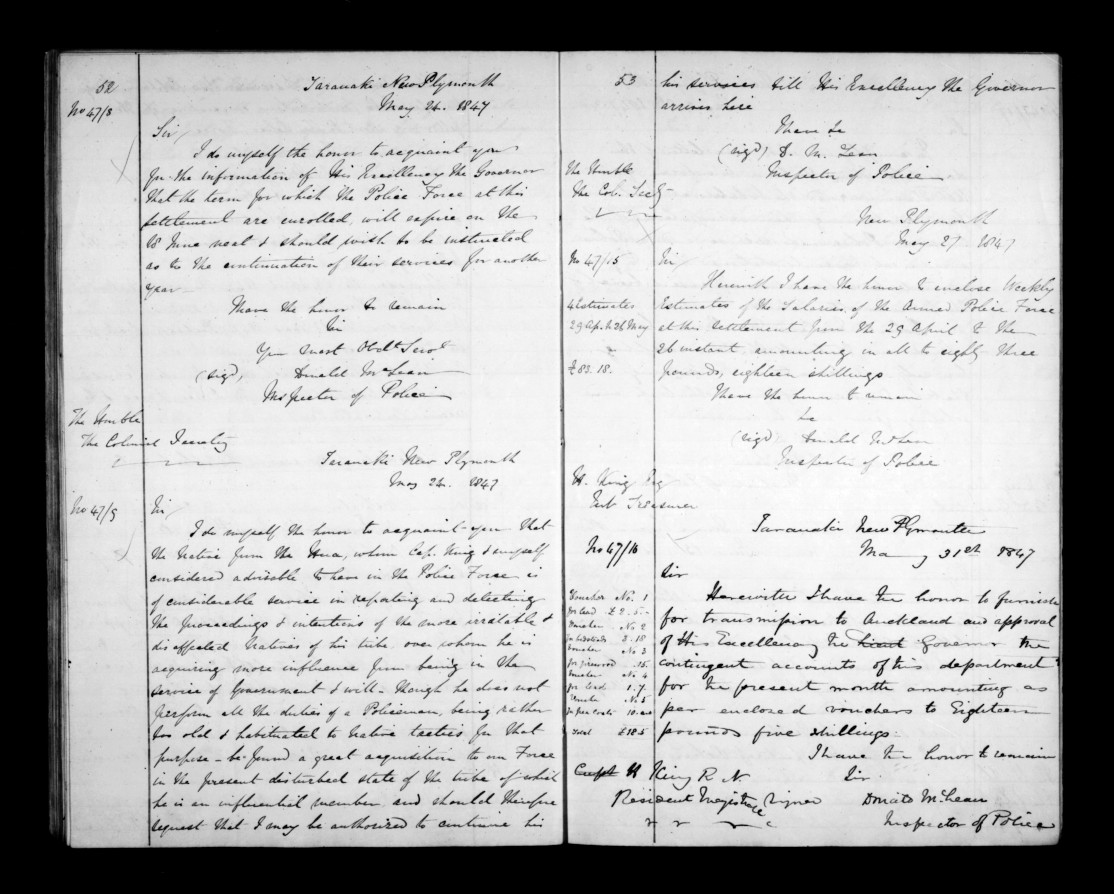 52
Taranaki New Plymouth
May 24. 1847
No 47/8
Sir,
I do myself the honor to acquaint you
for the information of His Excellency the Governor
that the term for which the Police Force at this
settlement are enrolled, will expire on the
18 June next & should wish to be instructed
as to the continuation of their services for another
year
I have the honor to remain
Sir
Your most Obdt Servt
(sigd) Donald McLean
Inspector of Police
The Honble
The Colonial Secretary
Taranaki New Plymouth
May 24. 1847
No 47/9
Sir
I do myself the honor to acquaint you that
the Native from the Hua, whom Cap. King & myself
considered advisable to have in the Police Force is
of considerable service in reporting and detecting
the proceedings & intentions of the more irratable &
disaffected Natives of his tribe over whom he is
acquiring more influence from being in the
service of Government & will - though he does not
perform all the duties of a Policeman, being rather
too old & habituated to native tactics for that
purpose - be found a great acquisition to our Force
in the present disturbed state of the tribe of which
he is an influential member and should therefore
request that I may be authorized to continue his
53
his services till His Excellency the Governor
arrives here
I have &c
(sigd) D. McLean
Inspector of Police
The Honble
The Col. Secy
New Plymouth
May 27 1847
No 47/15
Sir
Herewith I have the honor to enclose Weekly
4 Estimates
Estimates of the Salaries of the Armed Police Force
29 Apl to 26 May
at this settlement from the 29 April to the
26 instant, amounting in all to eighty three
£83.18.
pounds, eighteen shillings
I have the honor to remain
&c
(sigd) Donald McLean
Inspector of Police
H. King Esq
Sub Treasurer
Taranaki New Plymouth
May 31st 1847
No 47/16
Sir
Herewith I have the honor to furnish
for transmission to Auckland and approval
of His Excellency the Lieut Governor the
contingent accounts of this department
for the present month amounting as
per enclosed vouchers to Eighteen
pounds five shillings.
Voucher No. 1
£2.5.-
No 2
3.18
No 3
for firewood .15.
No 4
1.7.
No 5
10.
Total £18.5
I have the honor to remain
Sir
Capt H King R N
Resident Magistrate
Signed Donald McLean
Inspector of Police